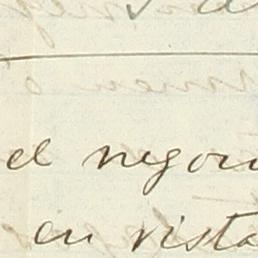 el negoci
en vista